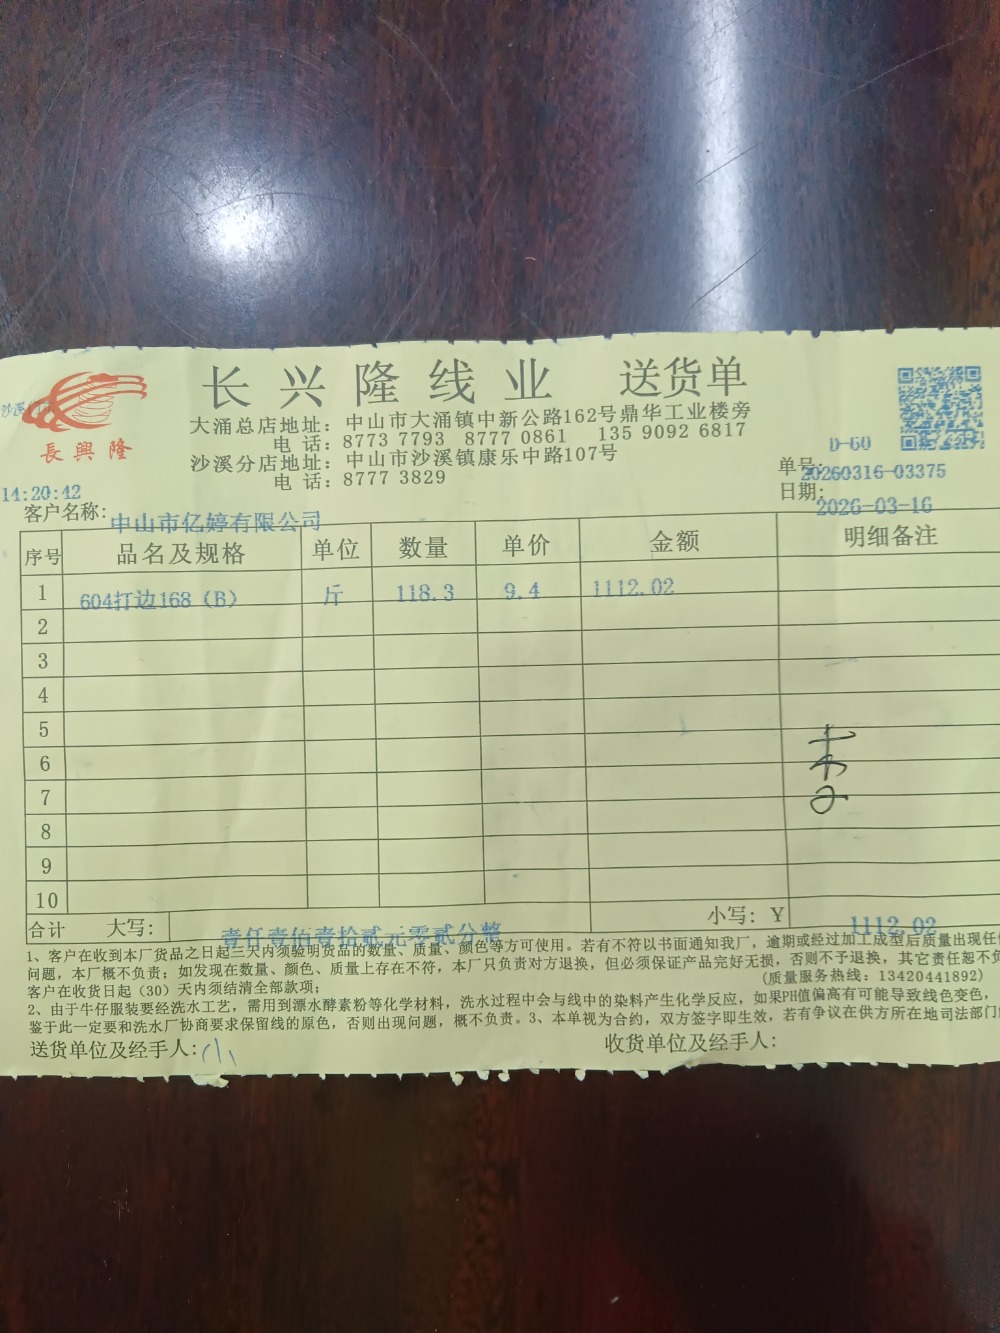 长兴隆线业 送货单
大涌总店地址: 中山市大涌镇中新公路162号鼎华工业楼旁
电 话: 8773 7793 8777 0861 135 9092 6817
沙溪分店地址: 中山市沙溪镇康乐中路107号
电 话: 8777 3829
長興隆
沙溪
D-60
单号: 20260316-03375
14:20:42
日期: 2026-03-16
客户名称: 中山市亿婷有限公司
序号 品名及规格 单位 数量 单价 金额 明细备注
1 604打边168（B） 斤 118.3 9.4 1112.02
2
3
4
5
6
7
8
9
10
合计 大写: 壹仟壹佰壹拾贰元零贰分整 小写: ¥ 1112.02
1、客户在收到本厂货品之日起三天内须验明货品的数量、质量、颜色等方可使用。若有不符以书面通知我厂，逾期或经过加工成型后质量出现任
问题，本厂概不负责；如发现在数量、颜色、质量上存在不符，本厂只负责对方退换，但必须保证产品完好无损，否则不予退换，其它责任恕不负
客户在收货日起（30）天内须结清全部款项；
(质量服务热线: 13420441892)
2、由于牛仔服装要经洗水工艺，需用到漂水酵素粉等化学材料，洗水过程中会与线中的染料产生化学反应，如果PH值偏高有可能导致线色变色，
鉴于此一定要和洗水厂协商要求保留线的原色，否则出现问题，概不负责。3、本单视为合约，双方签字即生效，若有争议在供方所在地司法部门
送货单位及经手人:
收货单位及经手人: